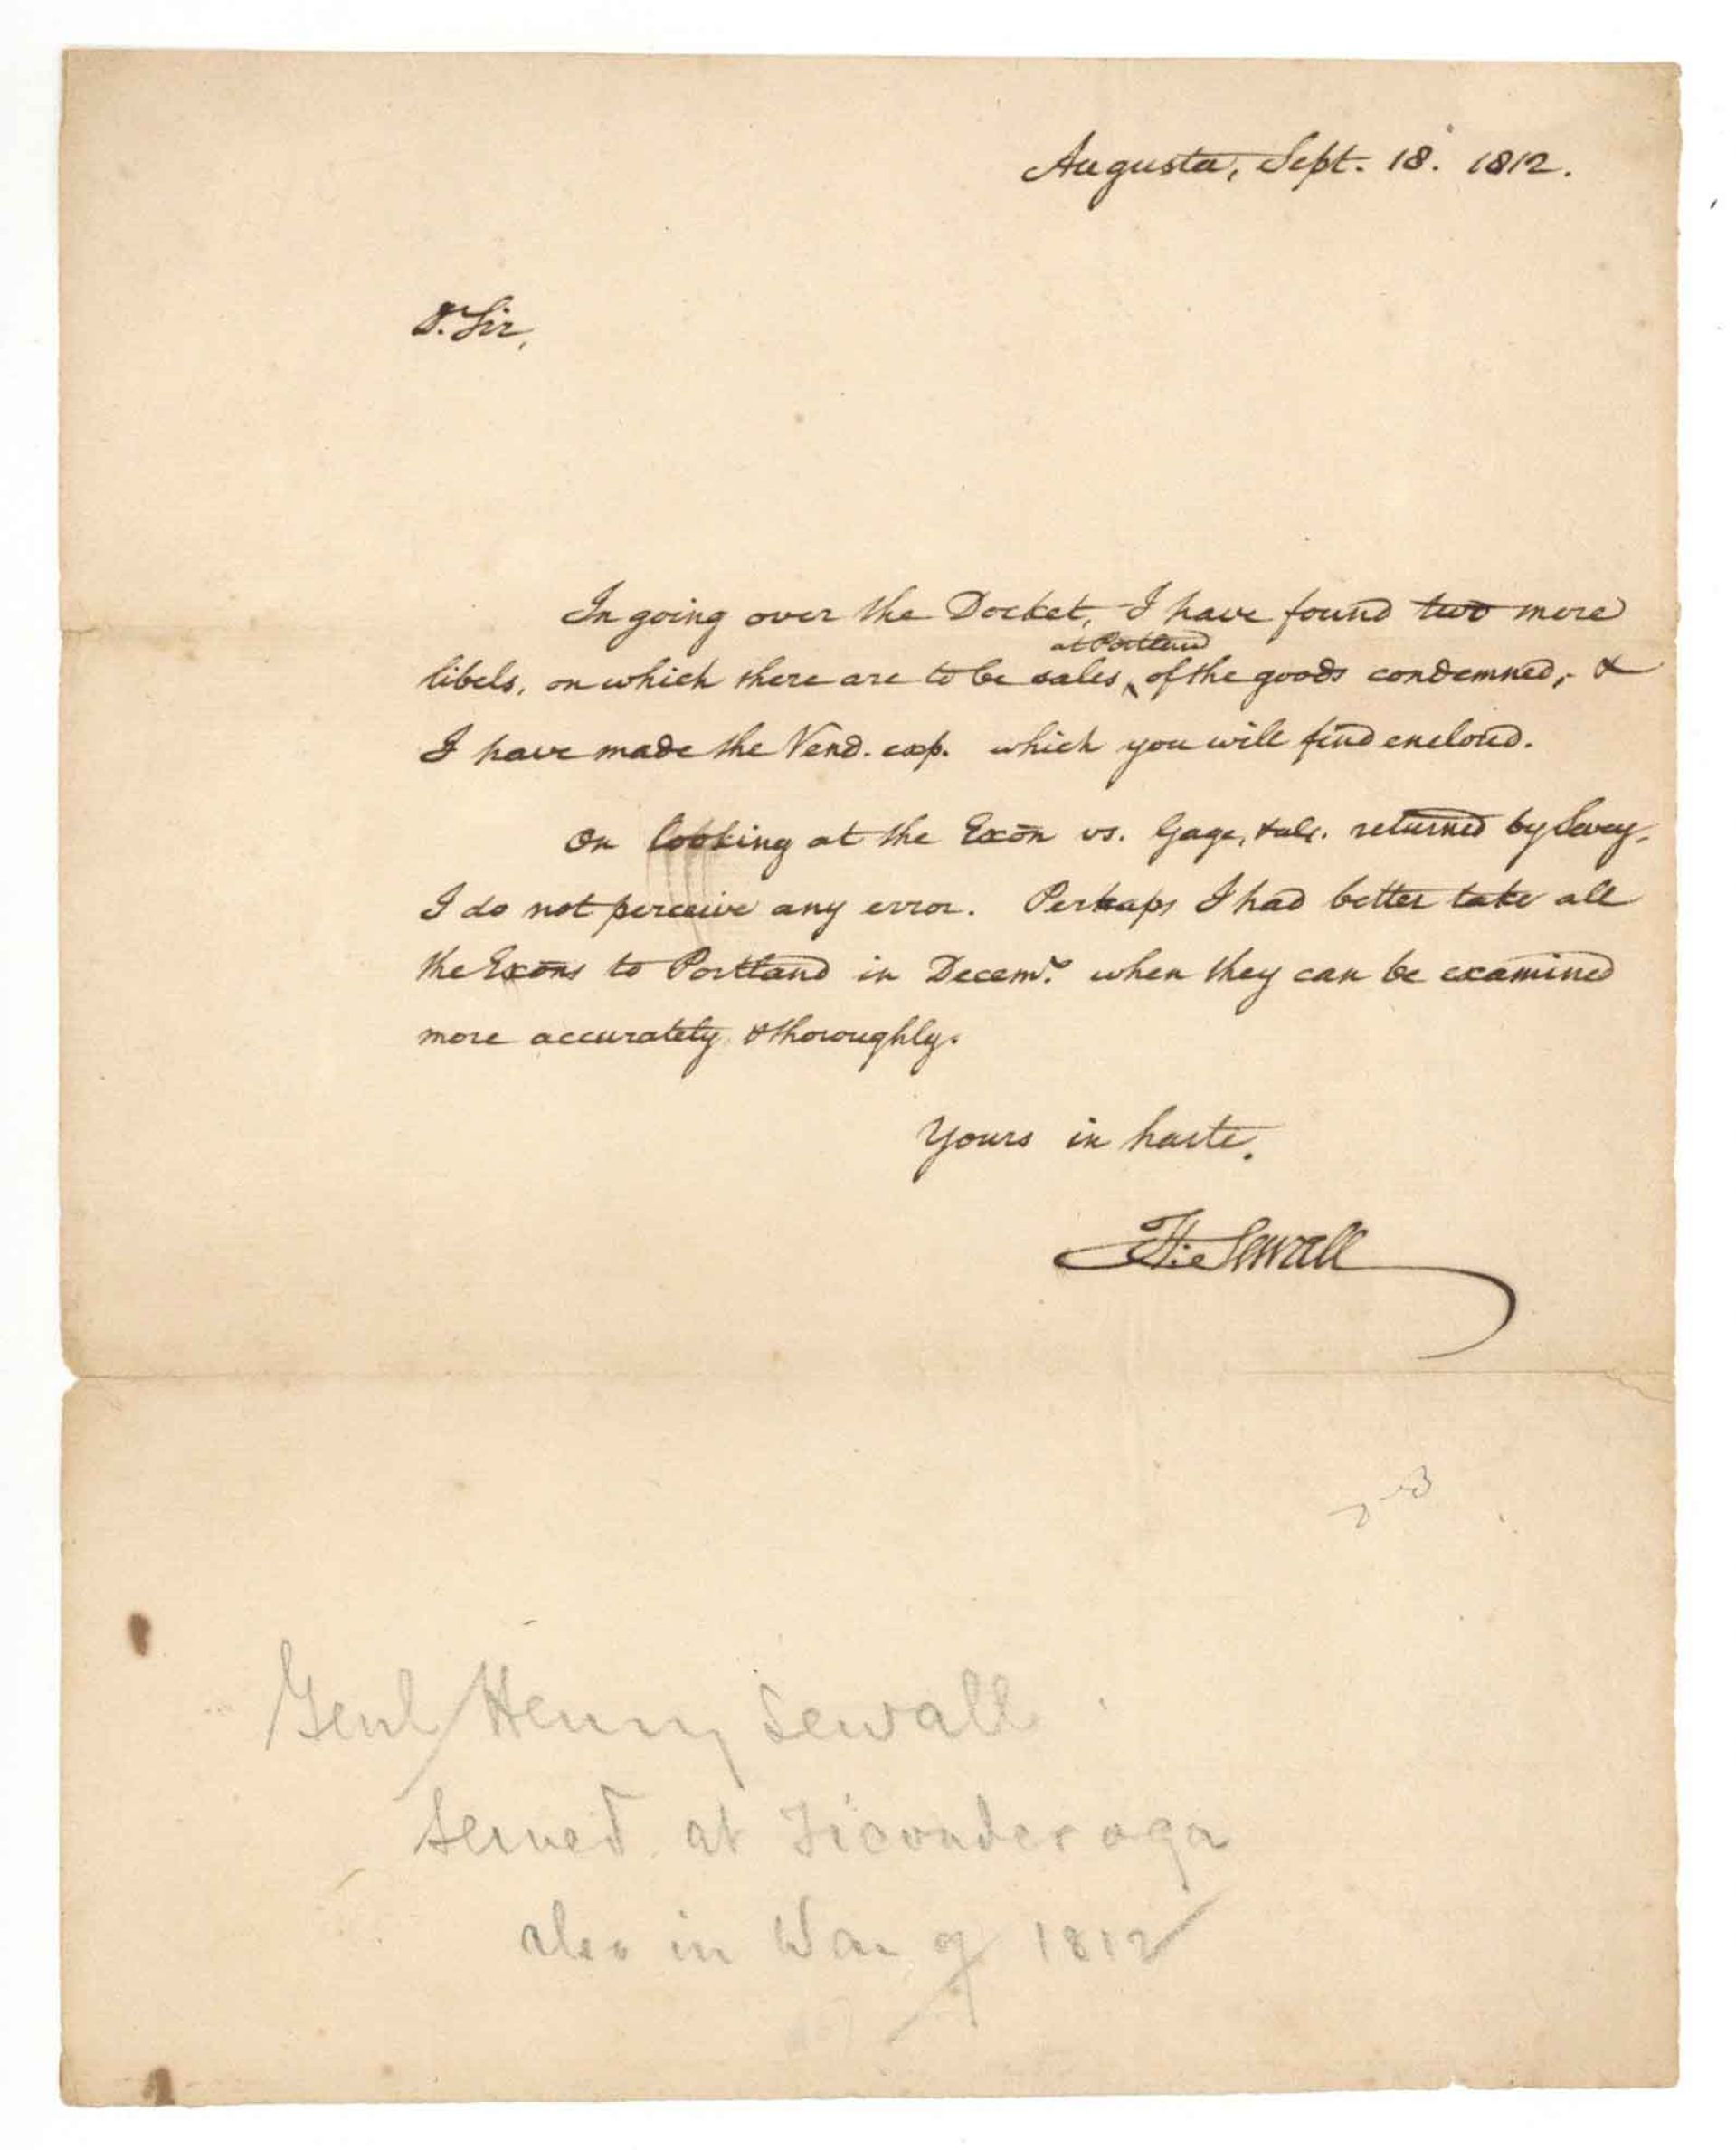 Augusta, Sept. 18. 1812.
D. Sir,
In going over the Docket, I have found two more
at Portland
libels, on which there are to be sales of the goods condemned, &
I have made the Vend. exp. which you will find enclosed.
On looking at the Exōn vs. Gage, & als. returned by
I do not perceive any error. Perhaps I had better take all
the Exōns to Portland in Decemr. when they can be examined
more accurately & thoroughly.
Yours in haste.
H. Sewall
Genl Henry Sewall
served at Ticonderoga
also in War of 1812